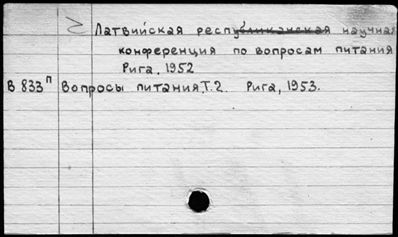 Латвийская республиканская научная
конференция по вопросам питания
Рига. 1952
В 833п Вопросы питания, Т.2. Рига, 1953.